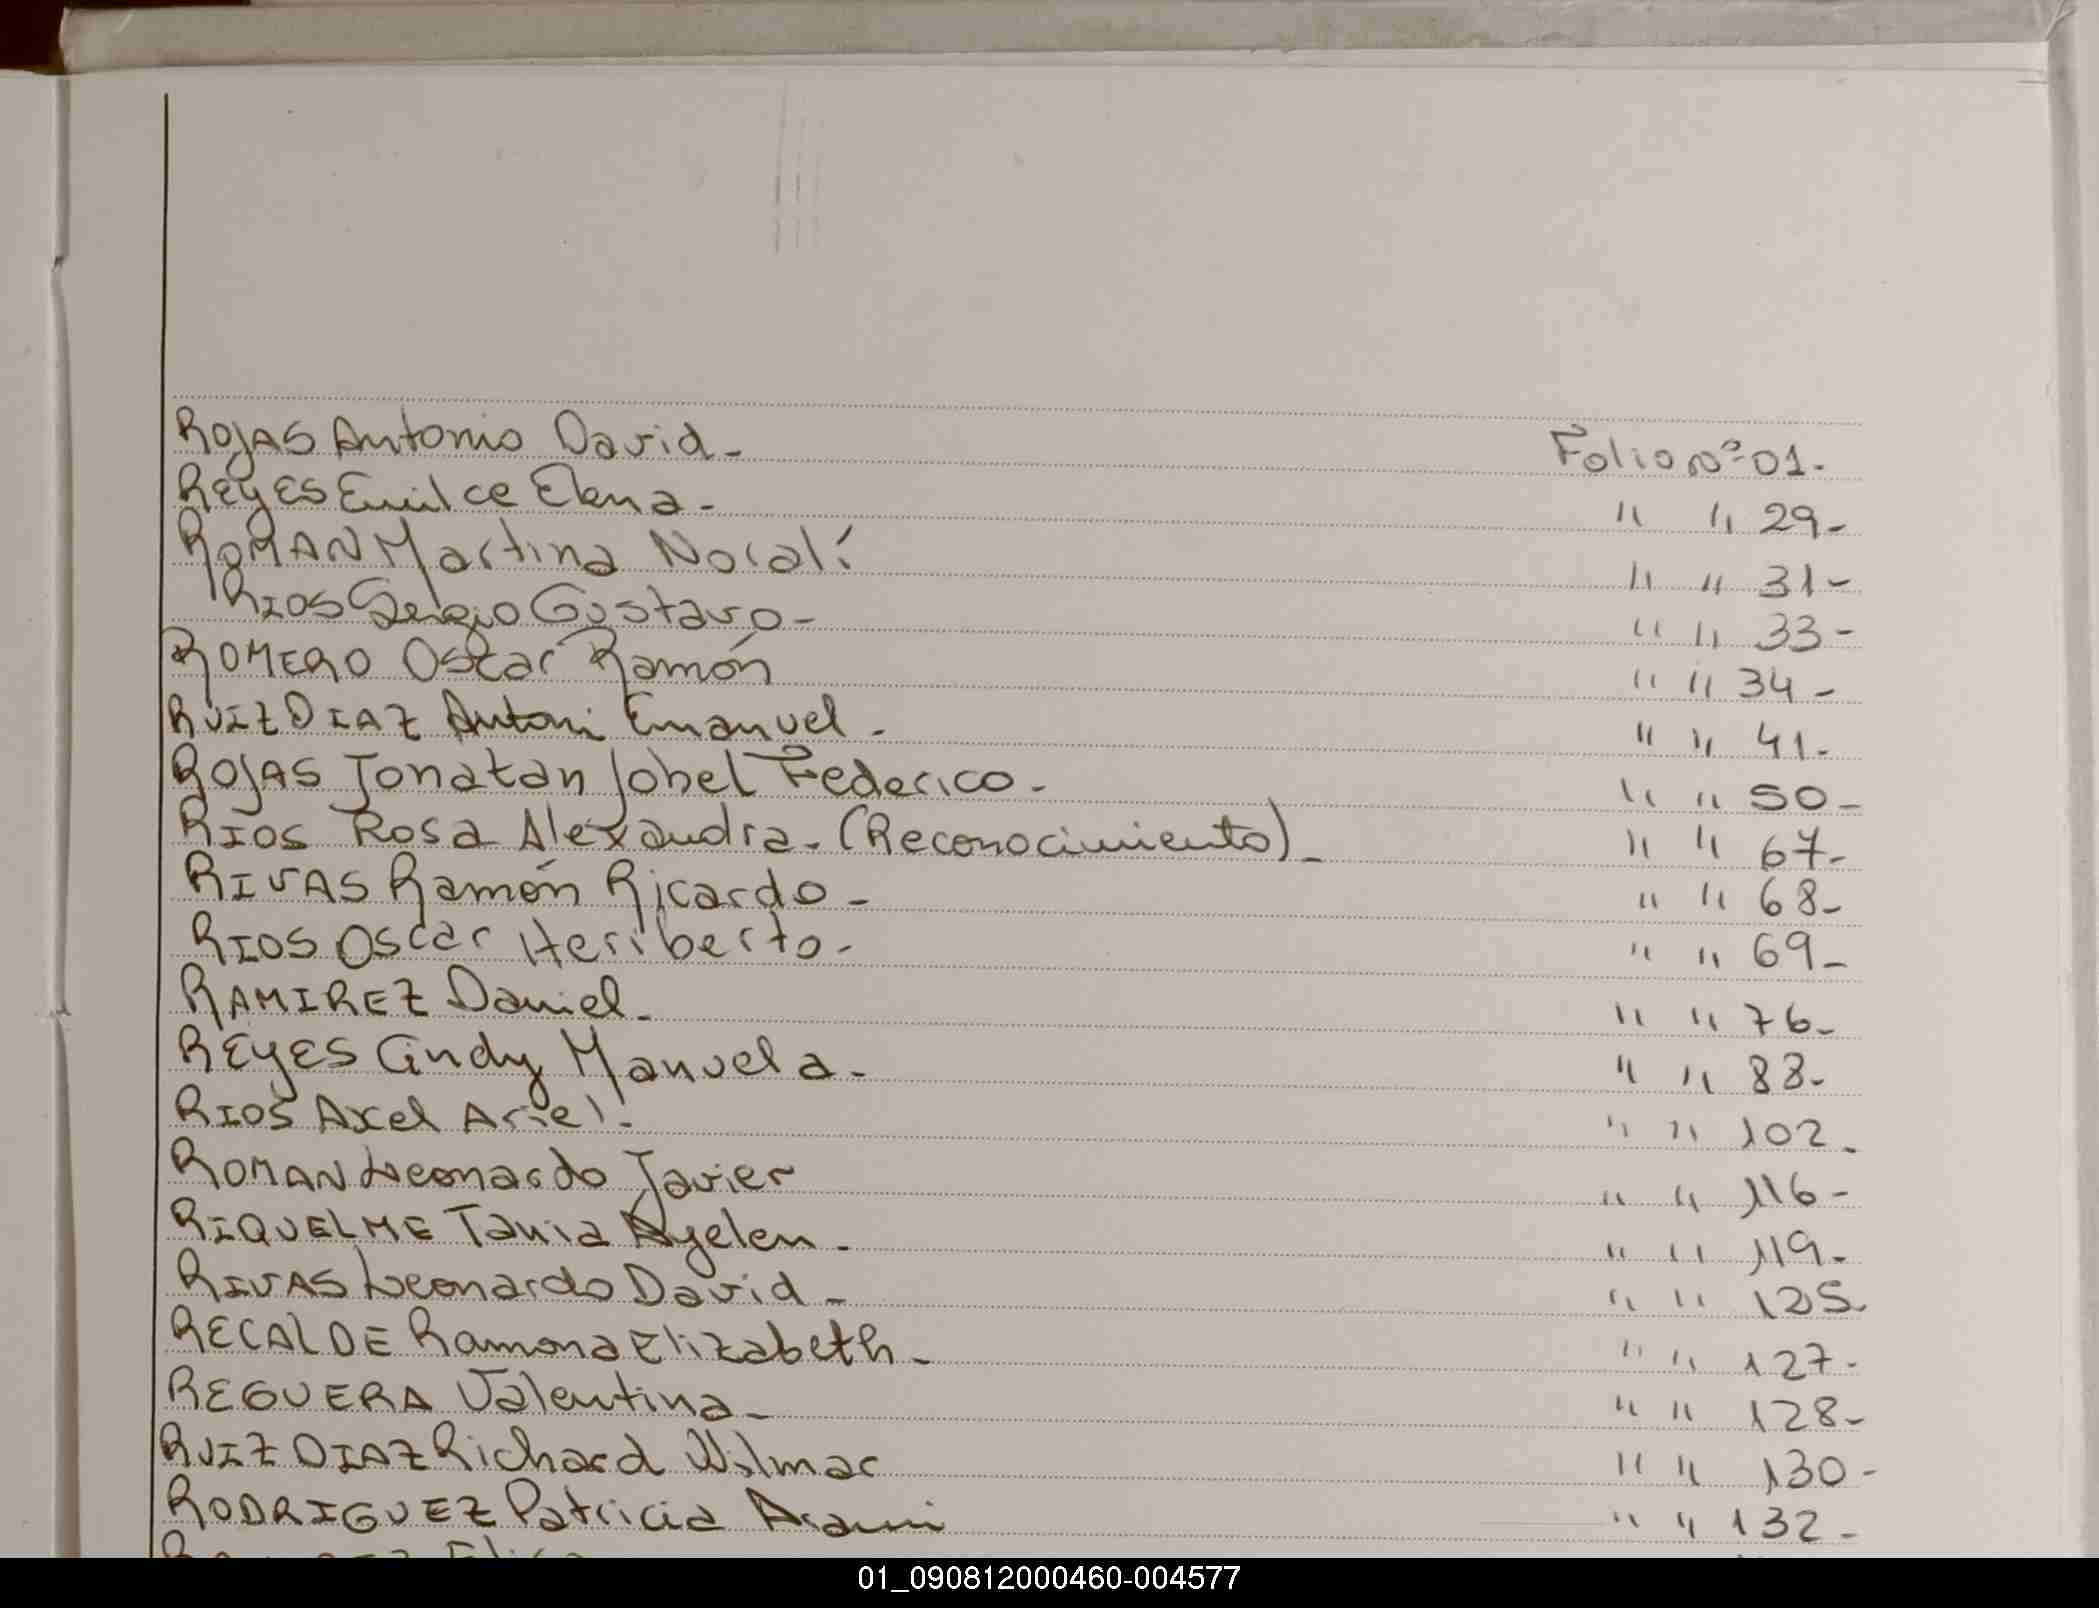 ROJAS Antonio David- Folio Nº 01.
REYES Emilce Elena- " " 29-
ROMAN Martina Noralí " " 31-
RIOS Sergio Gustavo- " " 33-
ROMERO Oscar Ramón " " 34-
RUIZ DIAZ Antoni Emanuel- " " 41-
ROJAS Jonatan Jobel Federico- " " 50-
RIOS Rosa Alexandra. (Reconocimiento)- " " 67-
RIVAS Ramón Ricardo- " " 68-
RIOS Oscar Heriberto- " " 69-
RAMIREZ Daniel- " " 76-
REYES Cindy Manuela- " " 88-
RIOS Axel Ariel- " " 102-
ROMAN Leonardo Javier " " 116-
RIQUELME Tania Ayelen- " " 119-
RIVAS Leonardo David- " " 125-
RECALDE Ramona Elizabeth- " " 127-
REGUERA Valentina- " " 128-
RUIZ DIAZ Richard Wilmar " " 130-
RODRIGUEZ Patricia Arami " " 132-
01_090812000460-004577